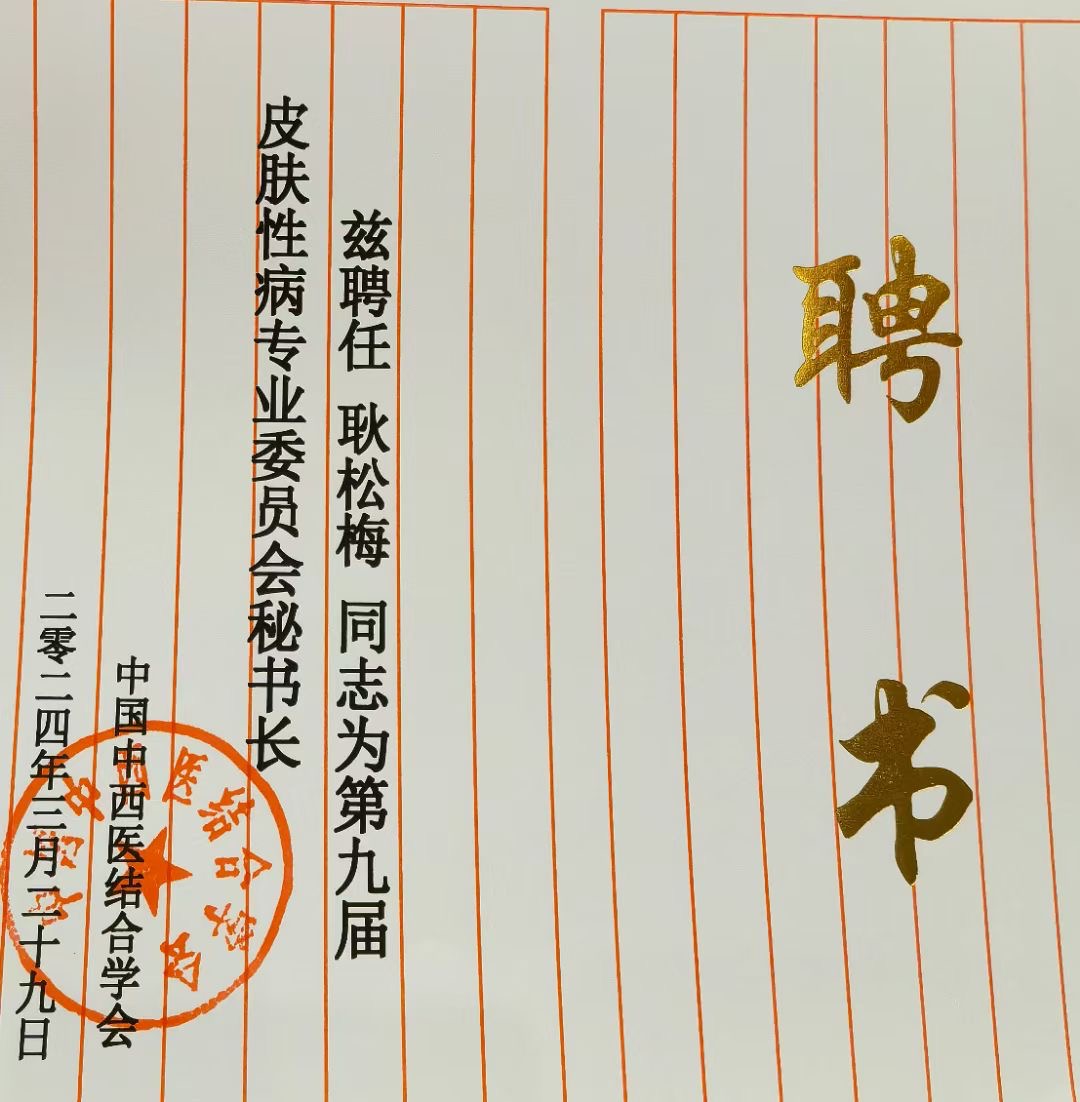 聘书
兹聘任 耿松梅 同志为第九届
皮肤性病专业委员会秘书长
中国中西医结合学会
二零二四年三月二十九日
中国中西医结合学会